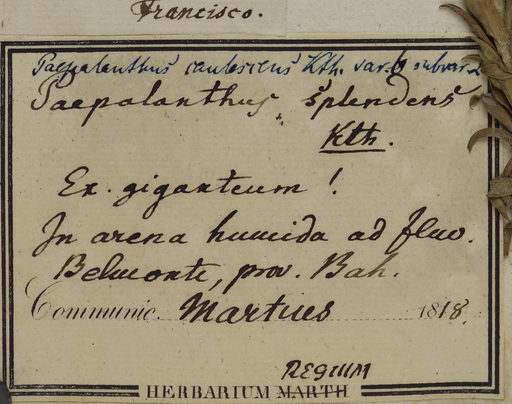 Francisco.
Paepalanthus caulescens Kth. var. b subvar. 2
Paepalanthus splendens
Kth.
Ex. giganteum!
In arena humida ad fluv.
Belmonte, prov. Bah.
Communic. Martius 1818.
REGIUM
HERBARIUM MARTH